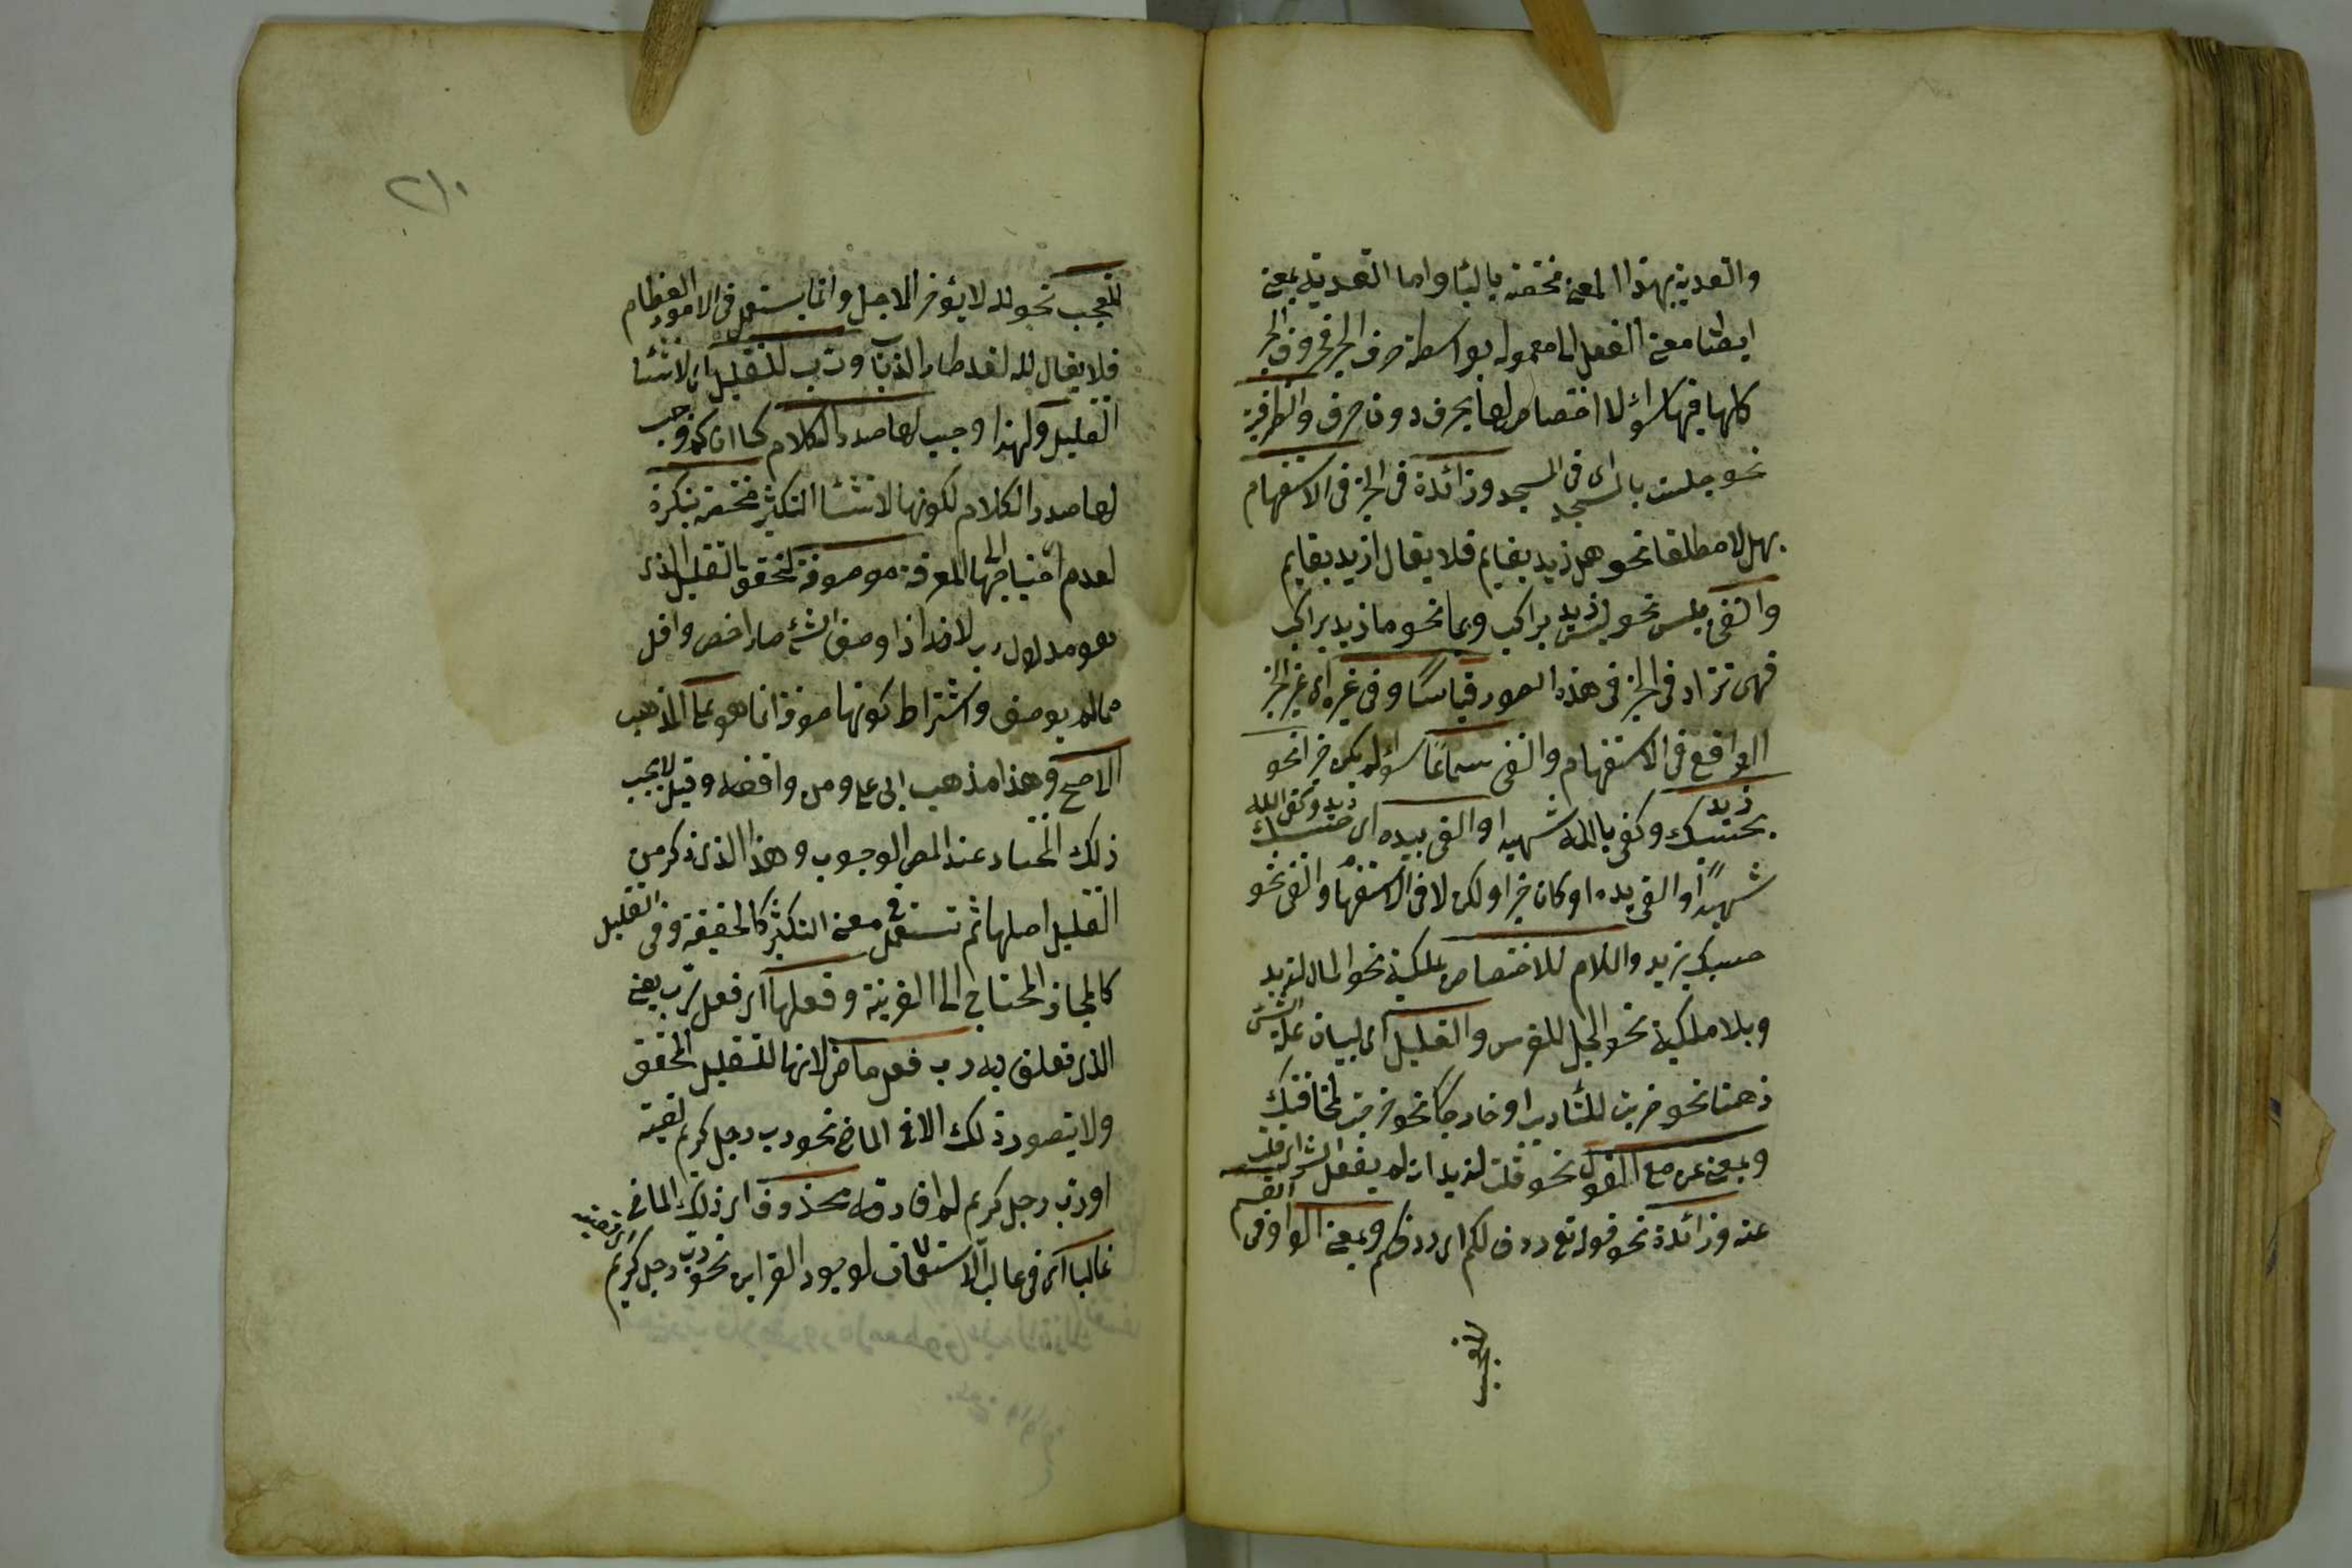 والتعدية بهذا المعنى مختصة بالباء واما التعدية بمعنى
ايصال معنى الفعل الى معموله بواسطة حرف الجر فحروف الجر
كلها فيها سواء لا اختصاص لها بحرف دون حرف والظرفية
نحو جلست بالمسجد اى فى المسجد وزائدة فى الخبر فى الاستفهام
بهل لا مطلقا نحو هل زيد بقايم فلا يقال ازيد بقايم
والنفى بليس نحو ليس زيد براكب وبما نحو ما زيد براكب
فهى تزاد فى الخبر فى هذه الصور قياسًا وفى غيره اى غير الخبر
الواقع فى الاستفهام والنفى سماعًا سواء لم يكن خبرا نحو
بحسبك زيد وكفى بالله شهيدا والقى بيده اى حسبك زيد وكفى الله
شهيدًا والقى يده او كان خبرا ولكن لا فى الاستفهام والنفى نحو
حسبك بزيد واللام للاختصاص بملكية نحو المال لزيد
وبلا ملكية نحو الجل للفرس والتعليل اى لبيان علة الشئ
ذهنا نحو ضربت للتأديب او خارجًا نحو خرجت لمخافتك
وبمعنى عن مع القول نحو قلت لزيد انه لم يفعل الشر اى قلت
عنه وزائدة نحو قوله تع ردف لكم اى ردفكم وبمعنى الواو فى القسم
للتعجب
٢١٠
للتعجب نحو لله لا يؤخر الاجل وانما يستعمل فى الامور العظام
فلا يقال لله لقد طار الذباب ورب للتقليل اى لانشا
التقليل ولهذا وجب لها صدر الكلام كما ان كم وجب
لها صدر الكلام لكونها لانشا التكثير مختصة بنكرة
لعدم احتياجها الى المعرفة موصوفة لتحقق التقليل الذى
هو مدلول رب لانه اذا وصف الشئ صار اخص واقل
مما لم يوصف واشتراط كونها موصوفة انما هو على المذهب
الاصح وهذا مذهب ابى على ومن وافقه وقيل لا يجب
ذلك المختار عند المص الوجوب وهذا الذى ذكر من
التقليل اصلها ثم تستعمل فى معنى التكثير كالحقيقة وفى التقليل
كالمجاز المحتاج الى القرينة وفعلها اى فعل رب يعنى
الذى تعلق به رب فعل ماض لانها للتقليل المحقق
ولا يتصور ذلك الا فى الماضى نحو رب رجل كريم لقيته
او رب رجل كريم لم افارقه محذوف اى ذلك الماضى
غالبا اى فى غالب الاستعمالات لوجود القراين نحو رب رجل كريم اى لقيته